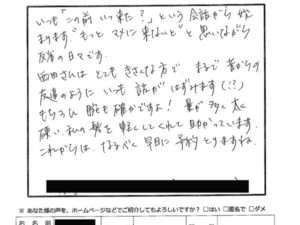 いつも「この前いつ来た？」という会話から始
まります "もっとマメに来ないと" と思いながら
反省の日々です。
西田さんはとてもきさくな方で まるで昔からの
友達のようにいつも話がはずみます(!!)
もちろん腕も確かですよ! 量が多く太く
硬い私の髪を軽くしてくれて助かっています。
これからは、なるべく早目に予約とりますね。
※ あなた様の声を、ホームページなどでご紹介してもよろしいですか？ □はい □匿名で □ダメ
お名前